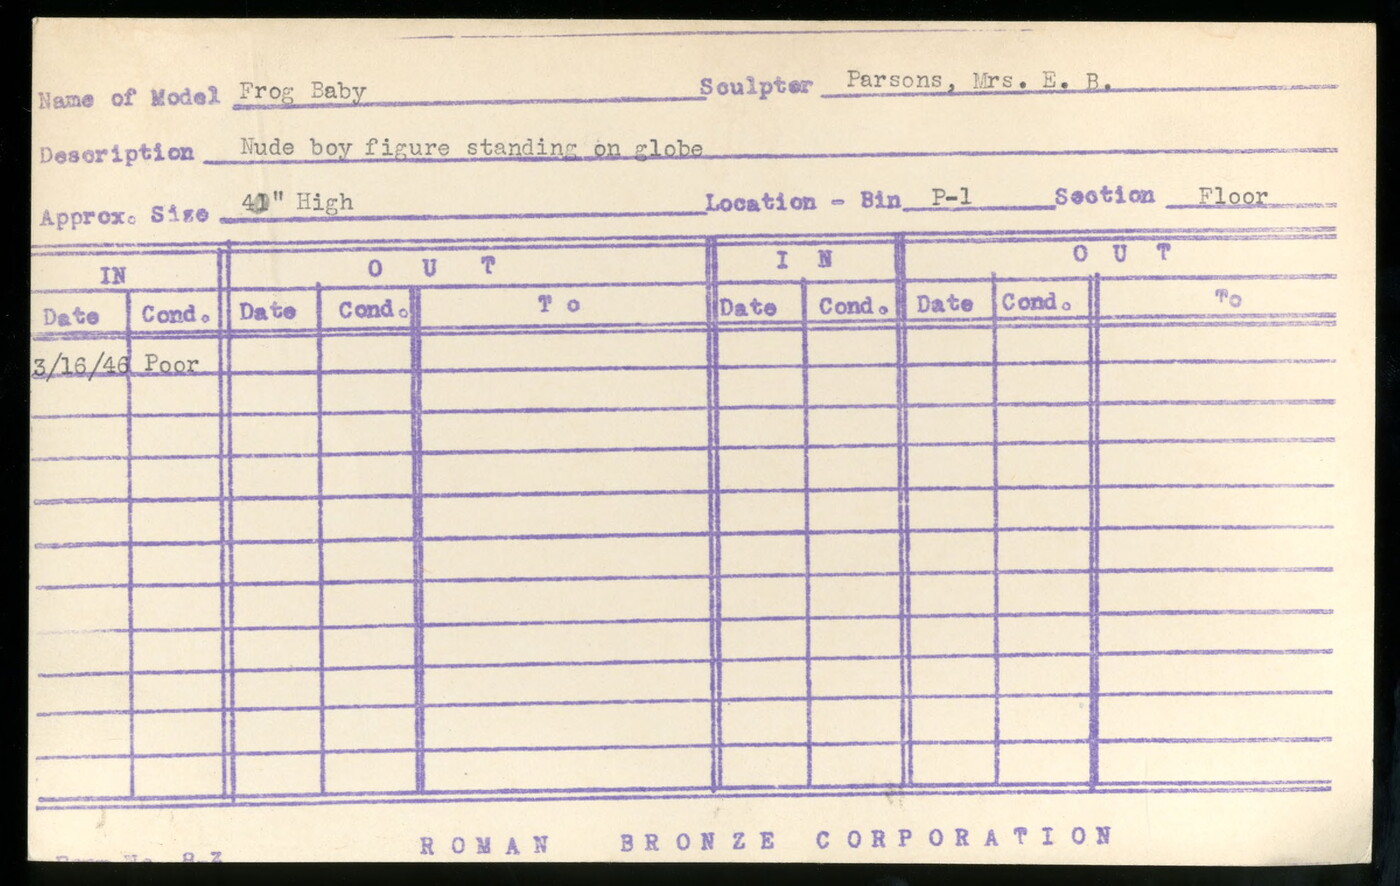 Name of Model Frog Baby Sculptor Parsons, Mrs. E. B.
Description Nude boy figure standing on globe
Approx. Size " High Location - Bin P-1 Section Floor
IN OUT IN OUT
Date Cond. Date Cond. To Date Cond. Date Cond. To
3/16/46 Poor
ROMAN BRONZE CORPORATION
No. 8-3